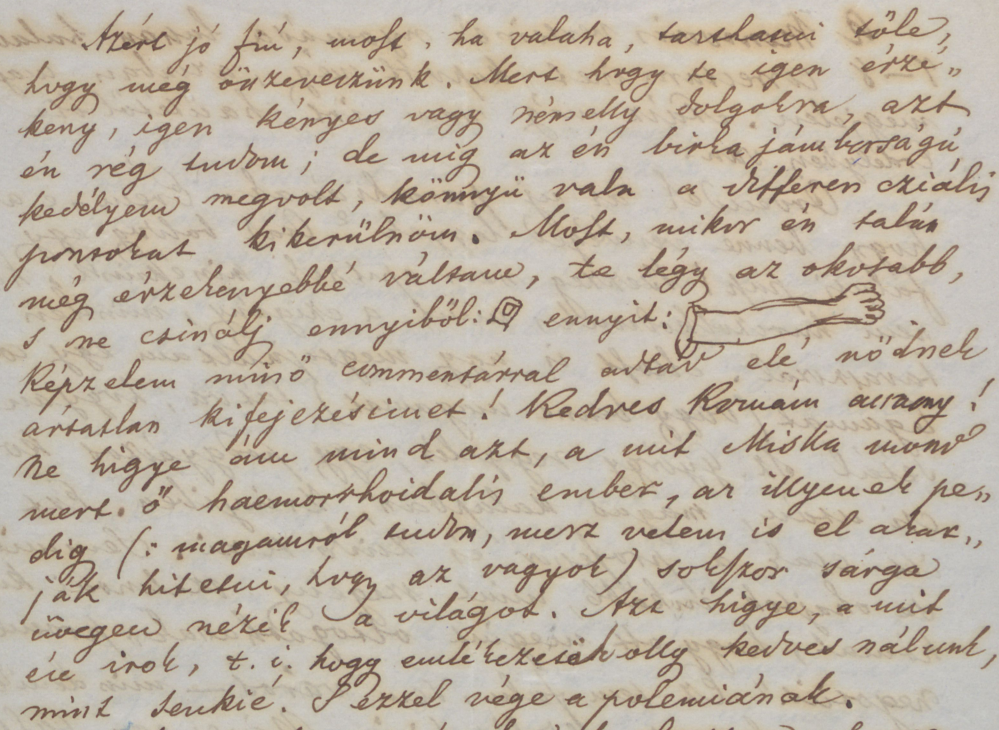 Azért jó fiú, most, ha valaha, tarthatni tőle,
hogy még öszeveszünk. Mert hogy te igen érzé„
keny, igen kényes vagy némelly dolgokra, azt
én rég tudom; de mig az én birka jámborságú
kedélyem megvolt, könnyü vala a differencziális
pontokat kikerülnöm. Most, mikor én talán
még érzékenyebbé váltam, te légy az okosabb,
s ne csinálj ennyiből: ennyit:
Képzelem minő commentárral adtad elé nődnek
ártatlan kifejezésimet! Kedves Komám asszony!
ne higye ám mind azt, a mit Miska mond
mert ő haemorrhoidalis ember, az illyenek pe„
dig (: magamról tudom, mert velem is el akar„
ják hitetni, hogy az vagyok) sokszor sárga
üvegen nézik a világot. Azt higye, a mit
én irok, t. i. hogy emlékezetök olly kedves nálunk,
mint senkié. S ezzel vége a polemiának.